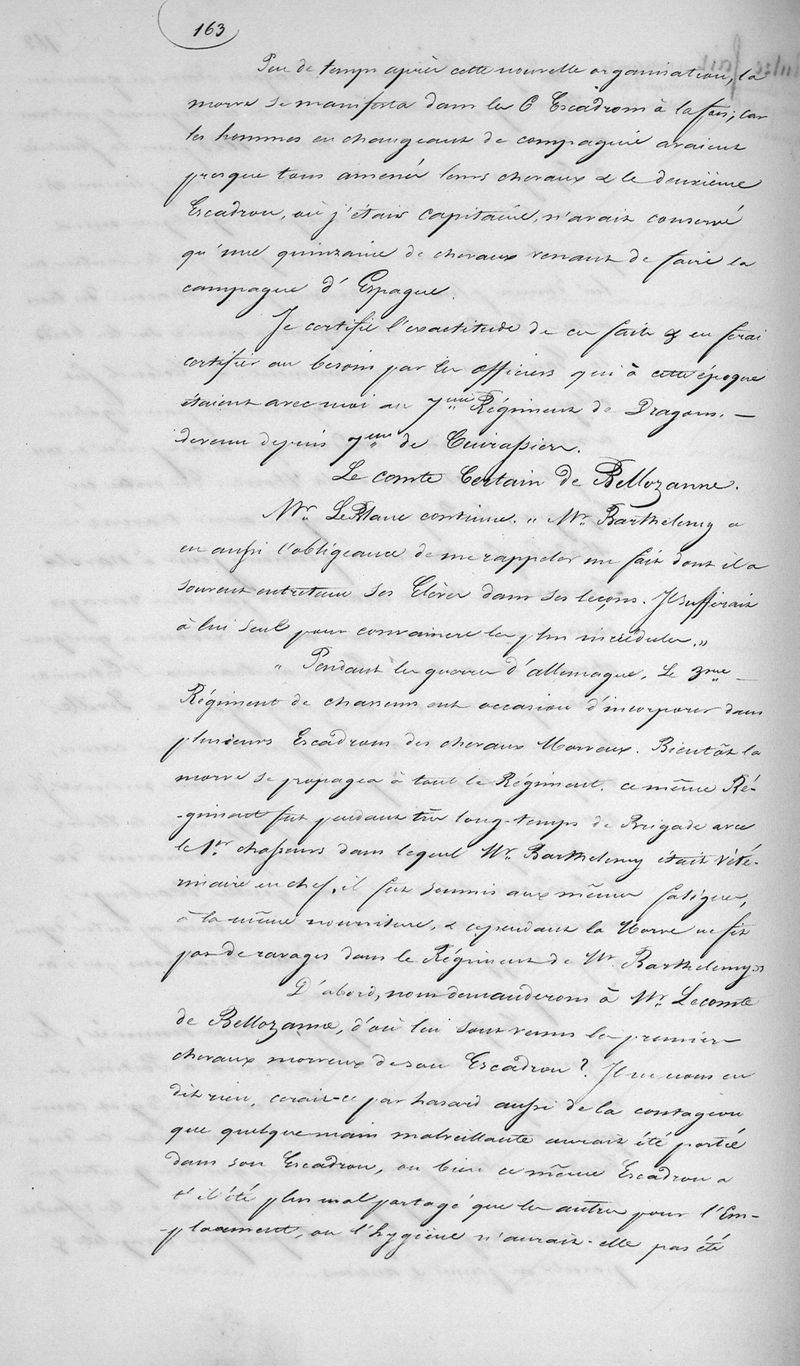 163
Peu de temps après cette nouvelle organisation, la
morve se manifesta dans les 6 Escadrons à la fois; car
les hommes en changeant de compagnie avaient
presque tous amené leurs chevaux & le deuxième
Escadron, où j'étais capitaine, n'avait conservé
qu'une quinzaine de chevaux venant de faire la
campagne d'Espagne.
Je certifie l'exactitude de ces faits & en ferai
certifier au besoin par les officiers qui à cette époque
étaient avec moi au 7me Régiment de Dragons. —
devenu depuis 7me de Cuirassiers.
Le comte Certain de Bellozanne.
Mr. LeBlanc continue. " Mr. Barthelemy a
eu aussi l'obligeance de me rappeler un fait dont il a
souvent entretenu ses Elèves dans ses leçons. Il suffirait
à lui seul pour convaincre les plus incrédules. "
" Pendant les guerres d'allemagne, Le 3me —
Régiment de chasseurs eut occasion d'incorporer dans
plusieurs Escadrons des chevaux Morveux. Bientôt la
morve se propagea à tout le Régiment. ce même Ré-
-giment fut pendant très long-temps de Brigade avec
le 1er chasseurs dans lequel Mr. Barthelemy était Vété-
rinaire en chef, il fut soumis aux mêmes fatigues,
à la même nourriture, & cependant la Morve ne fit
pas de ravages dans le Régiment de Mr. Barthelemy "
D'abord, nous demanderons à Mr. Lecomte
de Bellozanne, d'où lui sont venus les premiers
chevaux morveux de son Escadron ? Il ne nous en
dit rien, cerait-ce par hasard aussi de la contagion
que quelque main malveillante aurait été portée
dans son Escadron, ou bien ce même Escadron a
t'il été plus mal partagé que les autres pour l'Em-
-placement, ou l'hygiène n'aurait-elle pas été